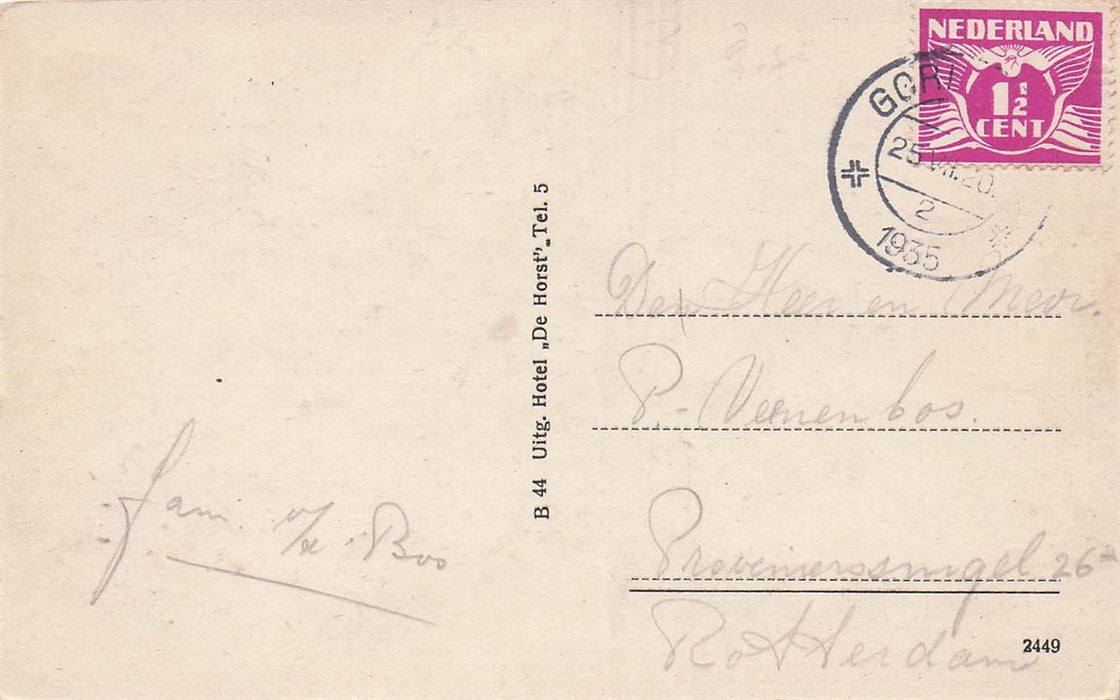 NEDERLAND
1½
CENT
25.VII.20.
2
1935
B 44 Uitg. Hotel „De Horst”„Tel. 5
Den Heer en Mevr.
P. Veenenbos.
Fam. v/d Bos
Provenierssingel 26
Rotterdam
2449